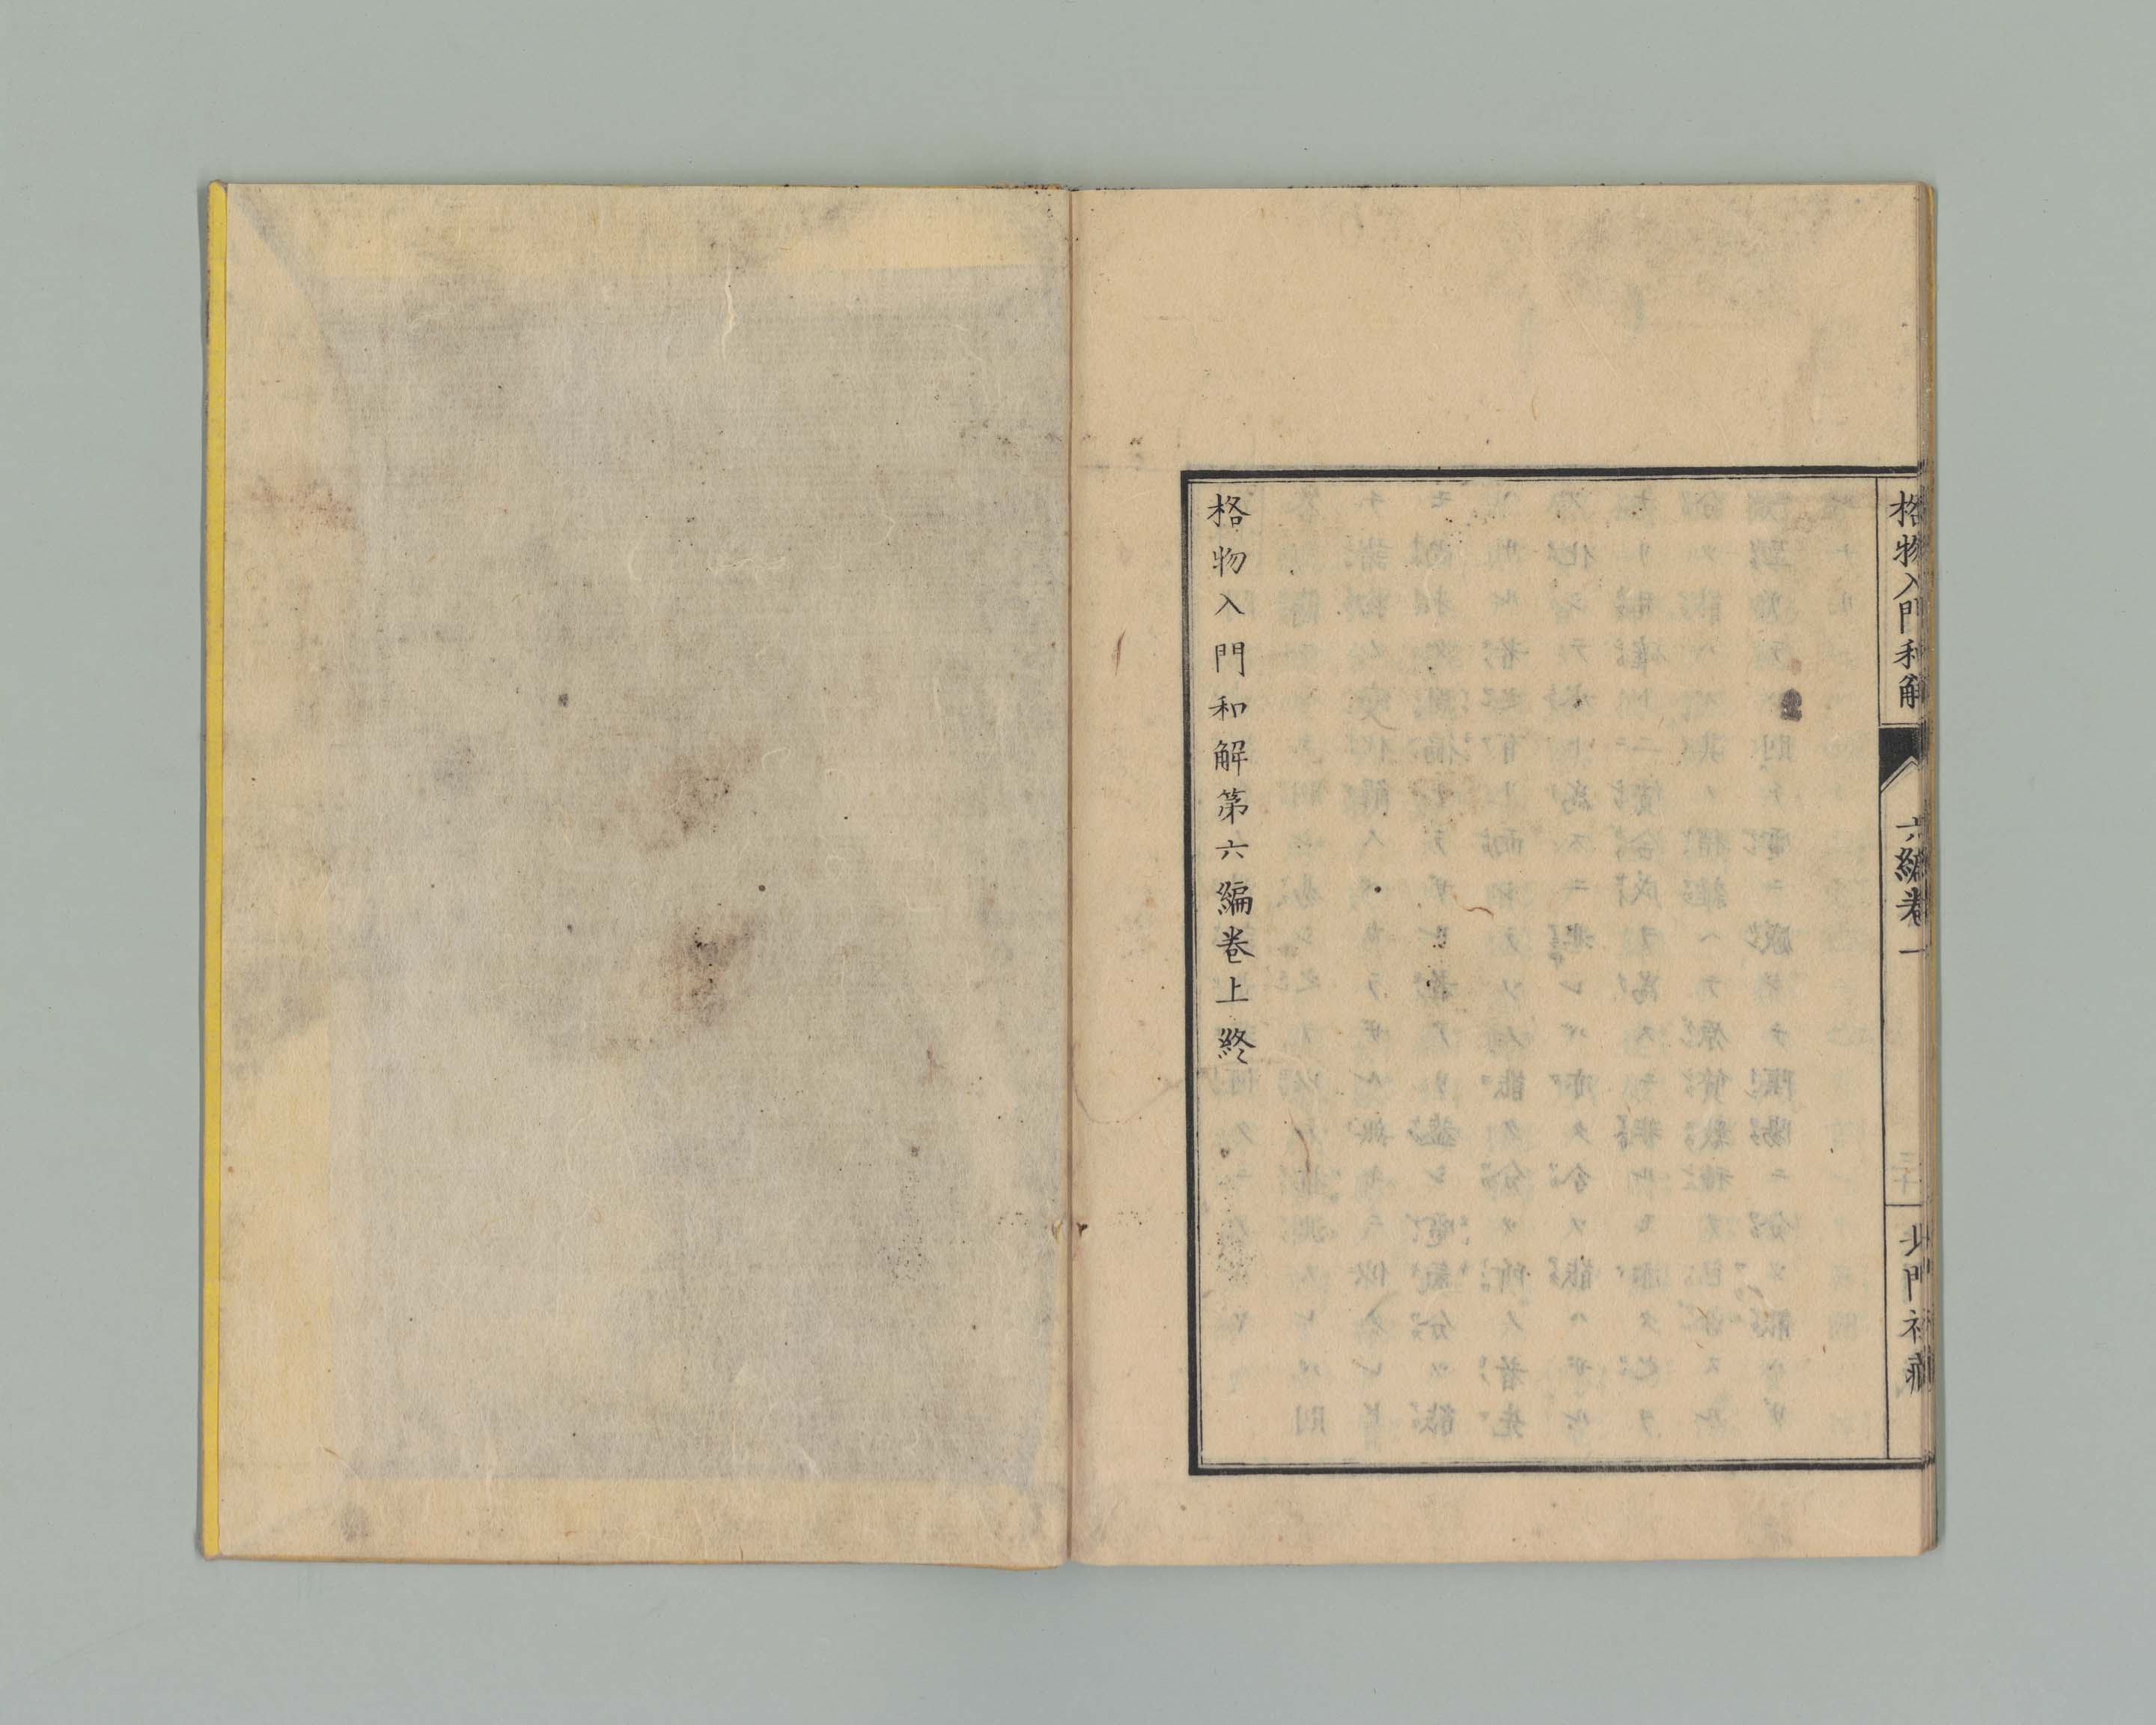 格物入門和解
六編卷一
三十
北門社藏
格物入門和解第六編卷上終